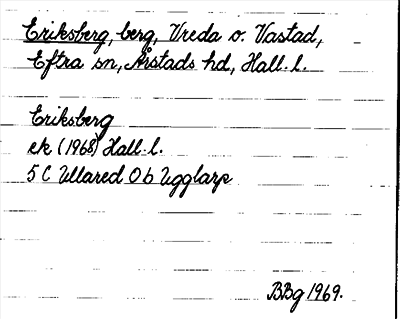 Eriksberg, berg, Vreda o. Vastad,
Eftra sn, Årstads hd, Hall. l.
Eriksberg
ek (1968) Hall. l.
5 C Ullared Ob Ugglarp
BBg 1969.